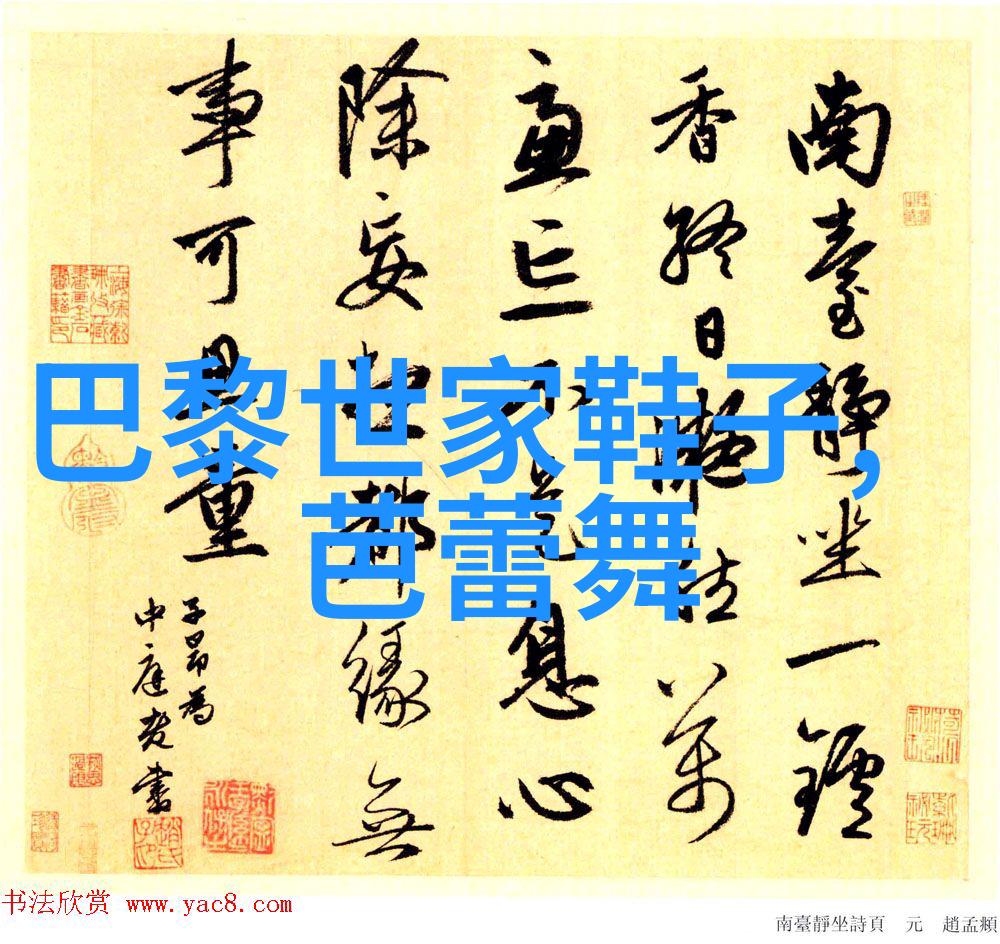 南臺靜坐一鑪
香終日凝萬
慮亡不是息心
除妄想都緣無
事可思量
子昂為
中庭老書
巴黎世家鞋子,
芭蕾舞
书法欣赏 www.yac8.com
南臺靜坐詩頁 元 趙孟頫